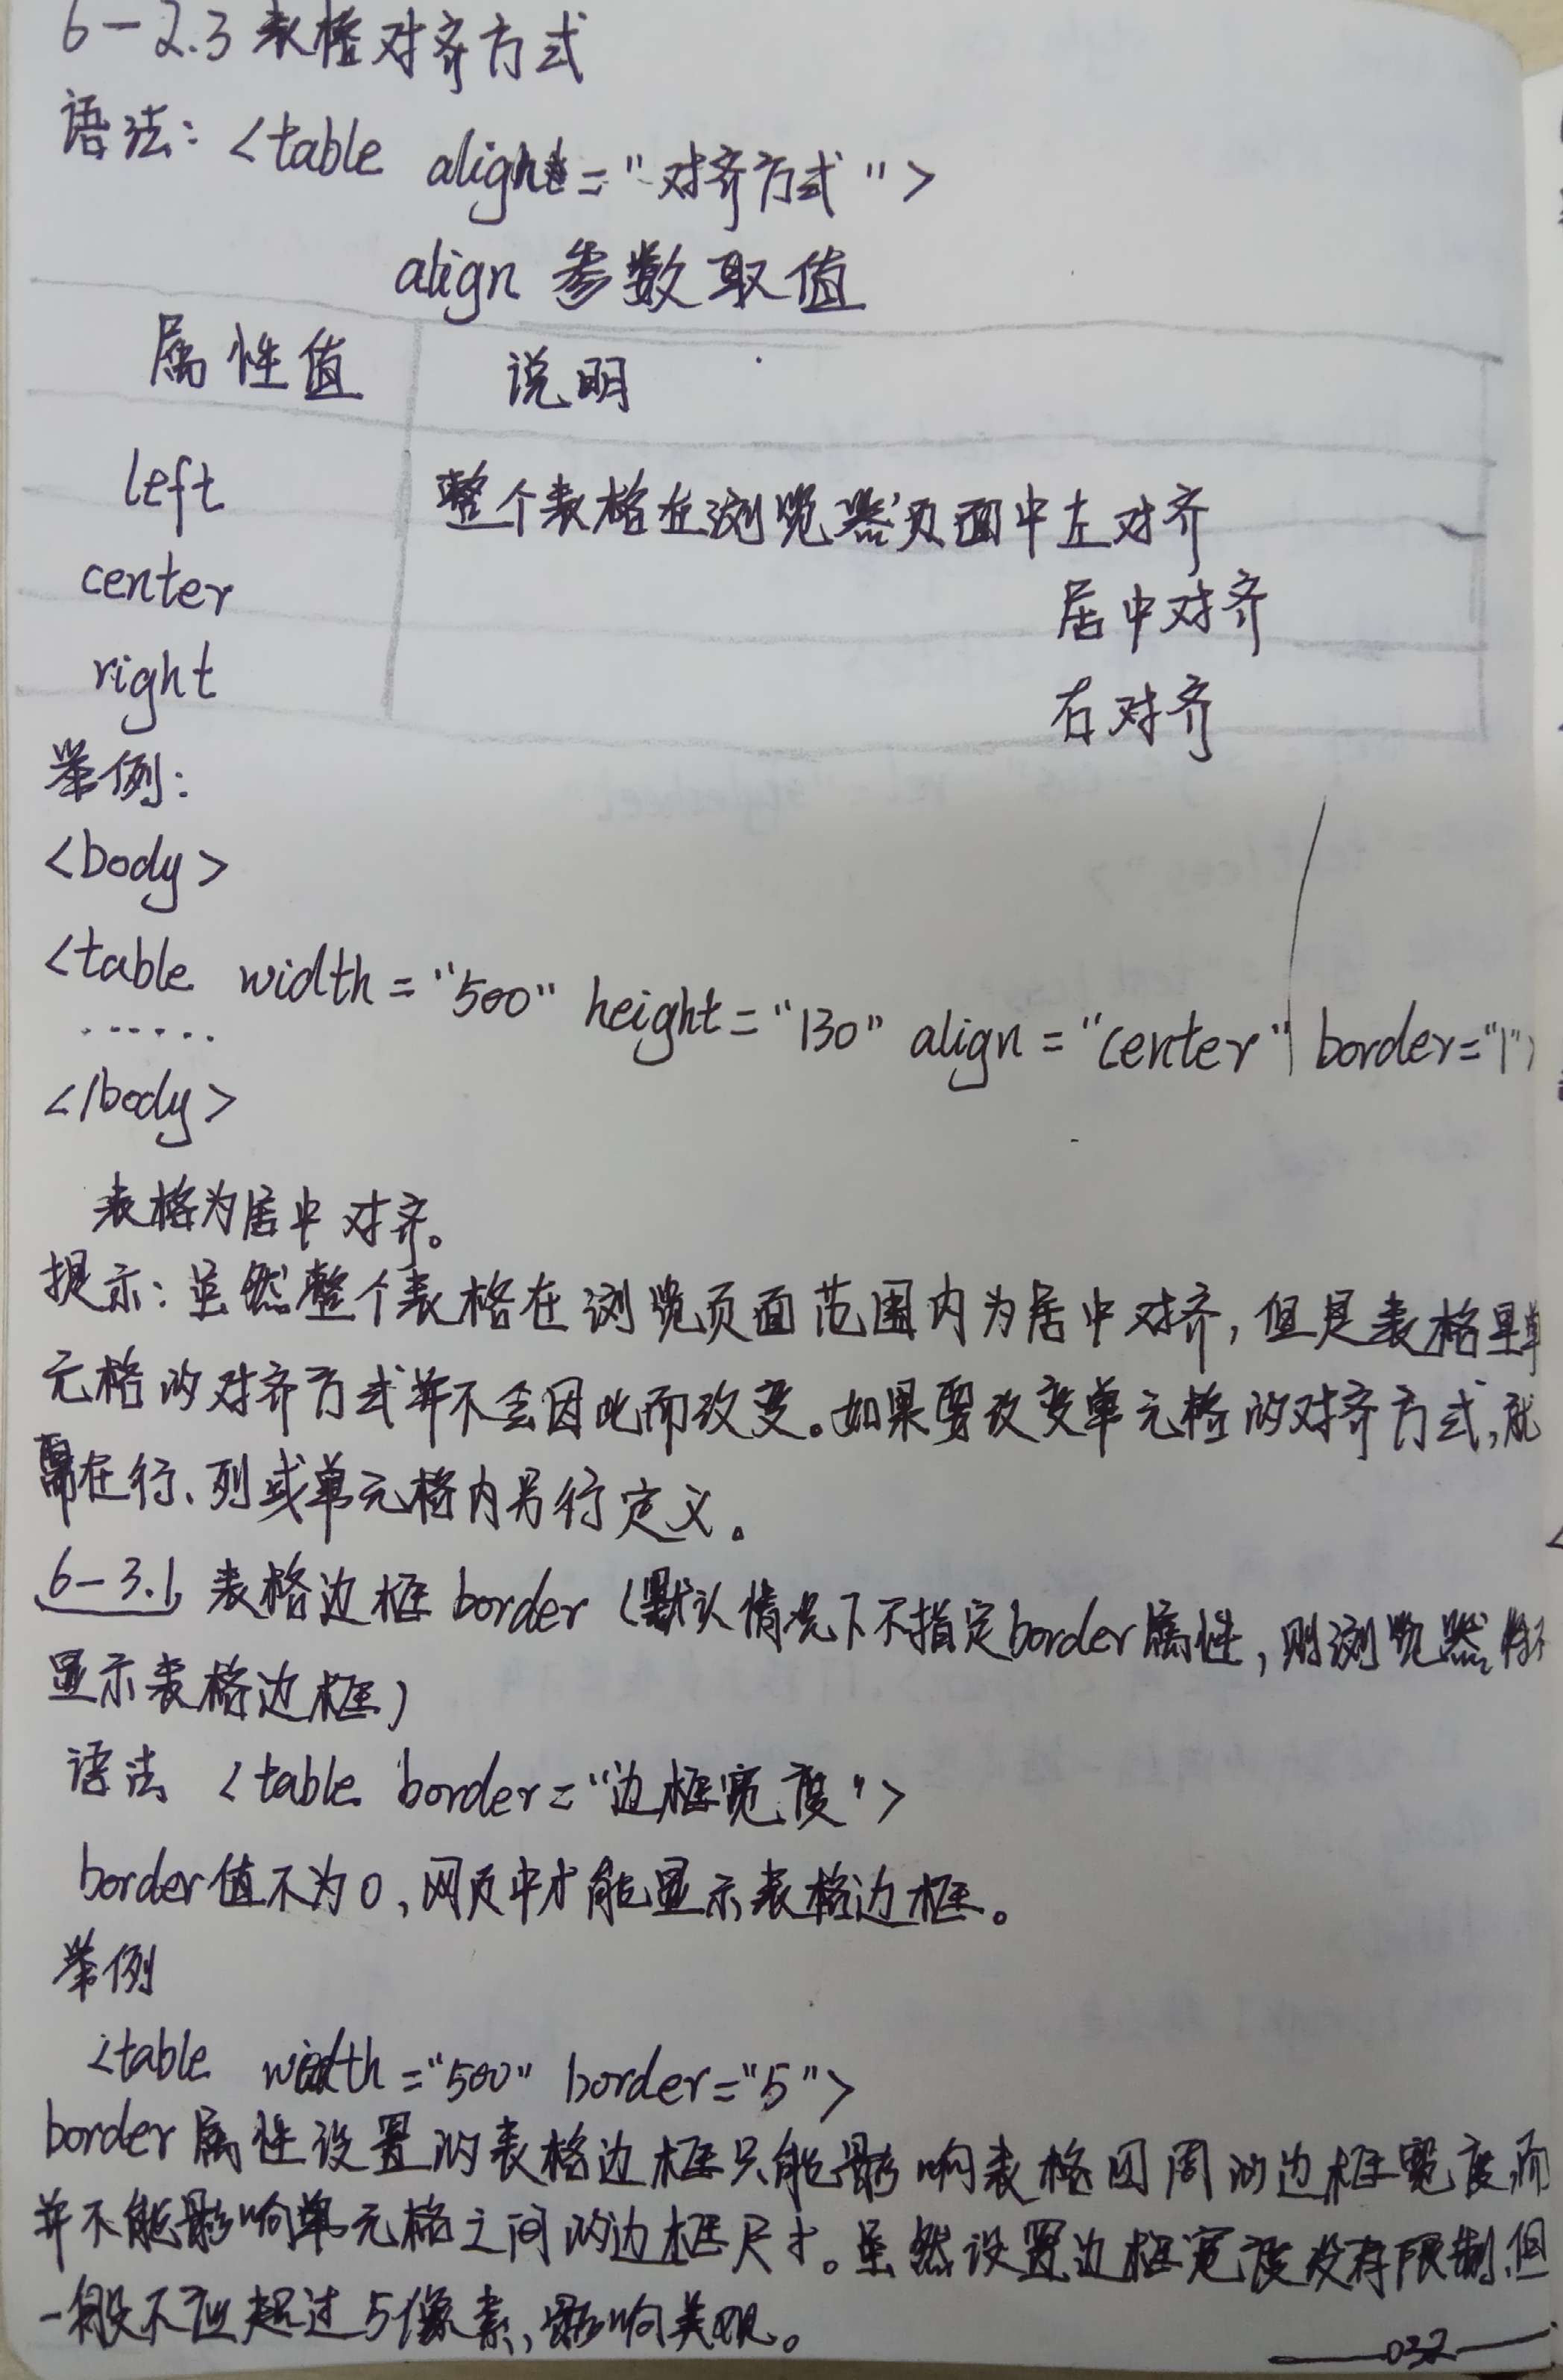 6-2.3 表格对齐方式
语法: <table align="对齐方式">
align 参数取值
属性值 说明
left 整个表格在浏览器页面中左对齐
center 居中对齐
right 右对齐
举例:
<body>
<table width="500" height="130" align="center" border="1">
······
</body>
表格为居中对齐。
提示:虽然整个表格在浏览页面范围内为居中对齐,但是表格里单
元格的对齐方式并不会因此而改变。如果要改变单元格的对齐方式,就
需在行、列或单元格内另行定义。
6-3.1 表格边框 border (默认情况下不指定border属性,则浏览器将不
显示表格边框)
语法 <table border="边框宽度">
border值不为0,网页中才能显示表格边框。
举例
<table width="500" border="5">
border属性设置的表格边框只能影响表格四周的边框宽度,而
并不能影响单元格之间的边框尺寸。虽然设置边框宽度没有限制,但
一般不应超过5像素,影响美观。
032